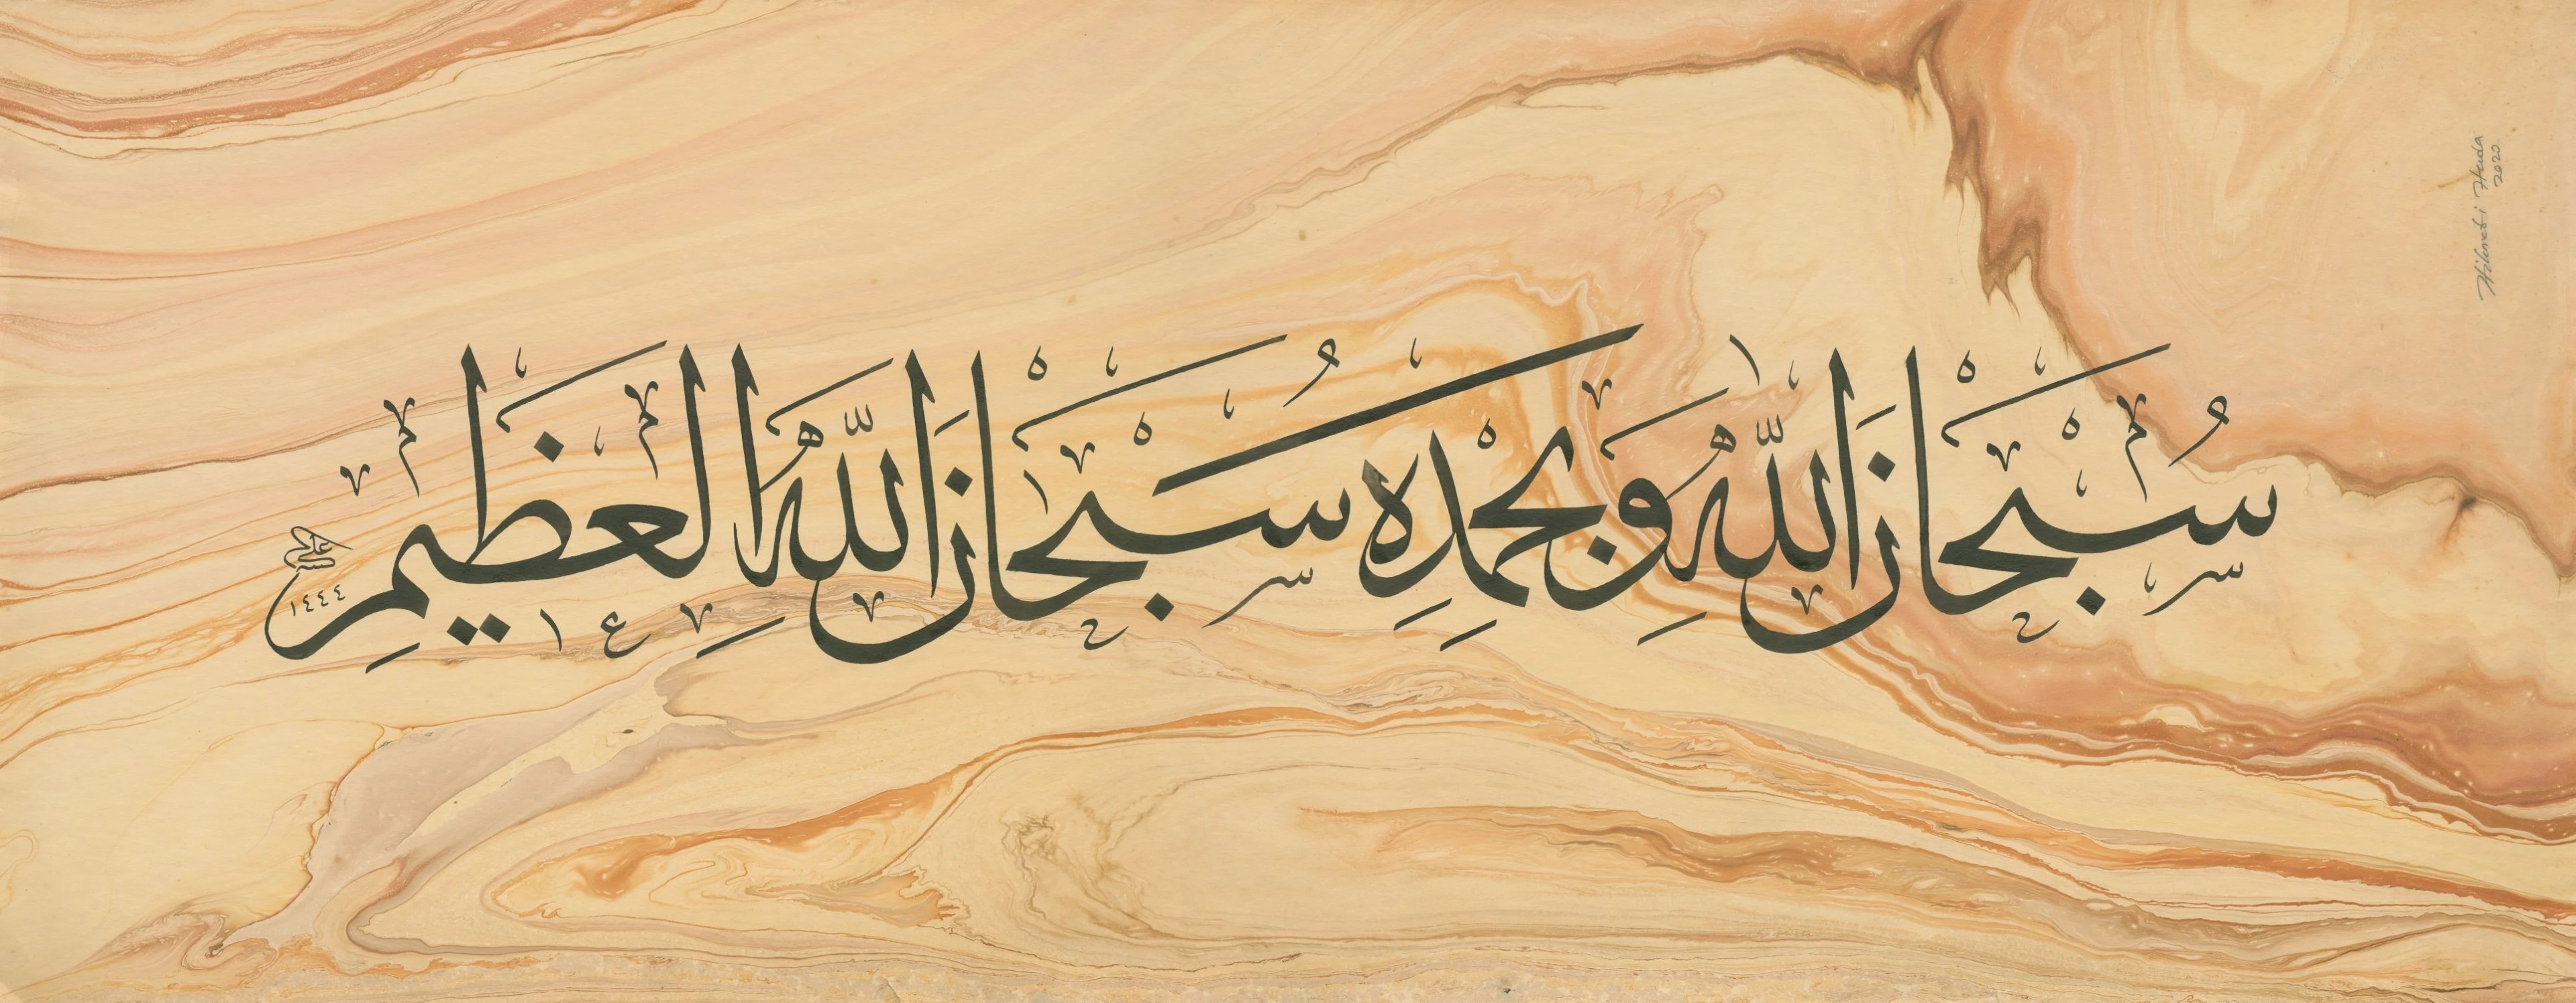 سُبْحَانَ اللّٰهِ وَبِحَمْدِهِ سُبْحَانَ اللّٰهِ الْعَظِيمِ
علي
١٤٤٤
Hikmet-i Huda
2020